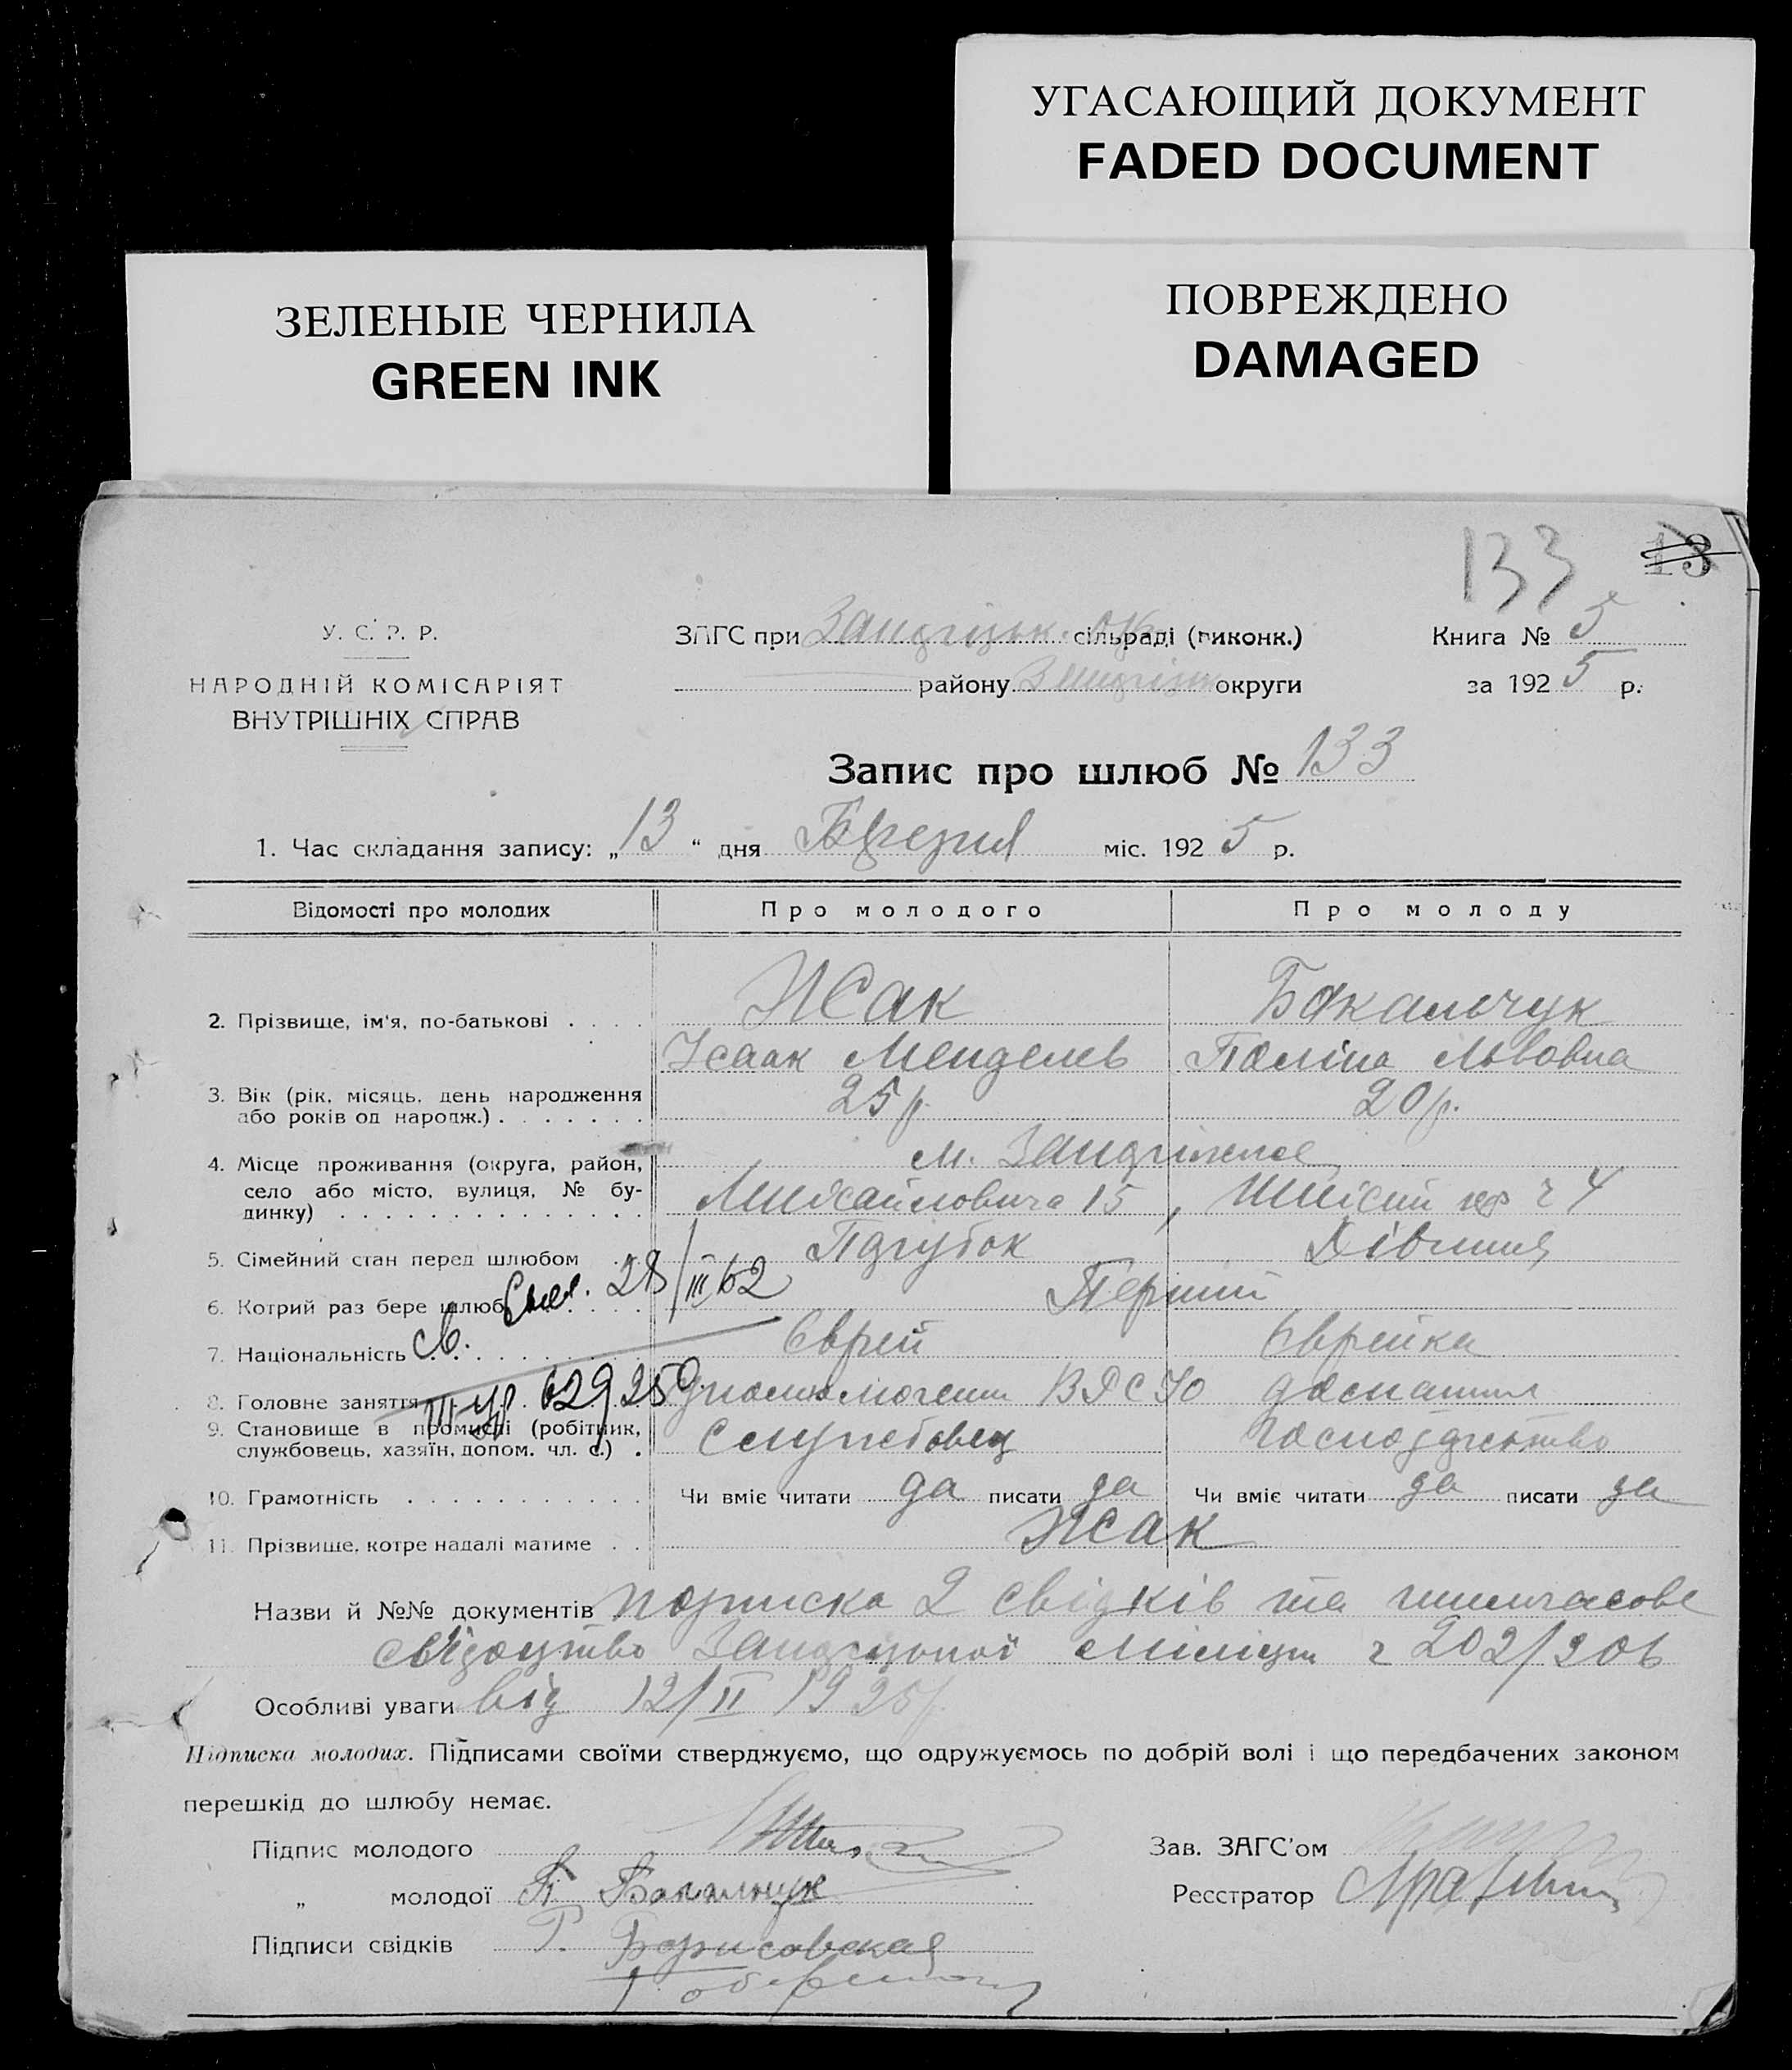 УГАСАЮЩИЙ ДОКУМЕНТ
FADED DOCUMENT
ЗЕЛЕНЫЕ ЧЕРНИЛА
GREEN INK
ПОВРЕЖДЕНО
DAMAGED
133 13
У. С. Р. Р.
НАРОДНІЙ КОМІСАРІЯТ
ВНУТРІШНІХ СПРАВ
ЗАГС при сільраді (виконк.)
району округи
Книга № 5
за 1925 р.
Запис про шлюб № 133
1. Час складання запису: „13“ дня Березня міс. 1925 р.
Відомості про молодих Про молодого Про молоду
2. Прізвище, ім'я, по-батькові . . . . Исак Бакальчук
Ісаак Менделев Поліна Львовна
3. Вік (рік, місяць, день народження 25 р. 20 р.
або років од народж.) . . . . . . .
4. Місце проживання (округа, район, м.
село або місто, вулиця, № бу- Михайловича 15,
динку) . . . . . . . . . . . . . .
5. Сімейний стан перед шлюбом Парубок Дівчина
28/III 62
6. Котрий раз бере шлюб Перший
7. Національність Єврей Єврейка
8. Головне заняття домашнє
9. Становище в промислі (робітник, Службовець господарство
службовець, хазяїн, допом. чл. с.) .
10. Грамотність . . . . . . . . . . . Чи вміє читати да писати да Чи вміє читати да писати да
11. Прізвище, котре надалі матиме . . Исак
Назви й №№ документів підписка 2 свідків та тимчасове
свідоцтво міліції 202/206
Особливі уваги від 12/II 1925 р.
Підписка молодих. Підписами своїми стверджуємо, що одружуємось по добрій волі і що передбачених законом
перешкід до шлюбу немає.
Підпис молодого
Зав. ЗАГС'ом
„ молодої П Бакальчук
Реєстратор
Підписи свідків Г. Борисовская